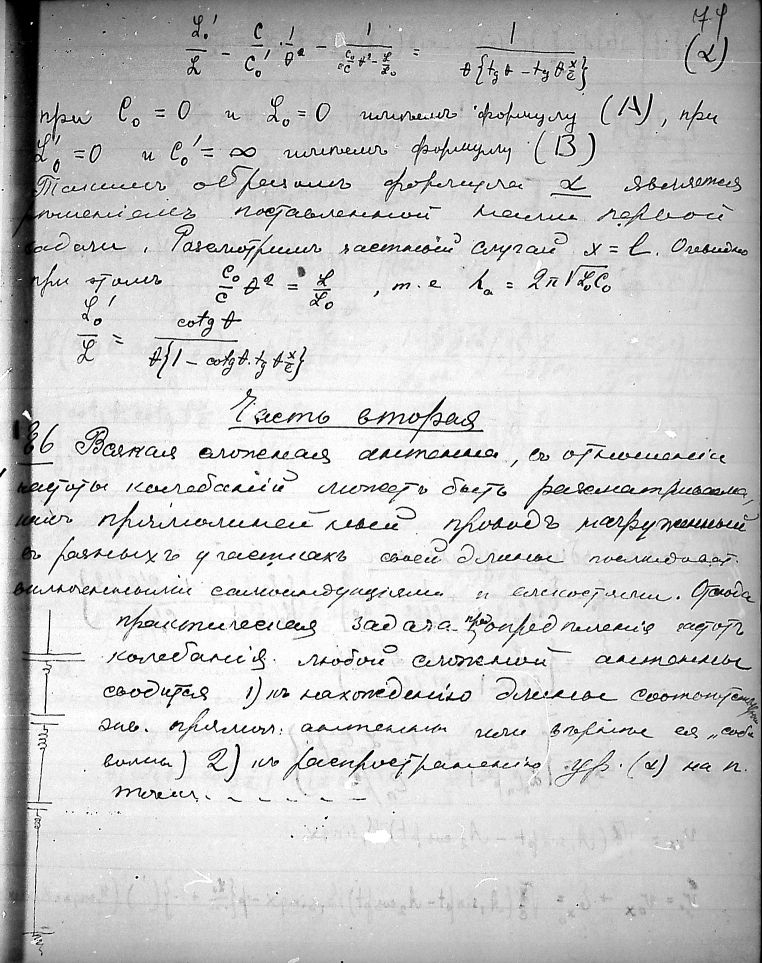 74
L₀'/L − C/C₀' · 1/θ² − 1/(C₀/C θ² − L/L₀) = 1/(θ{tg θ − tg θ x/l}) (α)
при C₀ = 0 и L₀ = 0 имѣемъ формулу (A), при
L₀' = 0 и C₀' = ∞ имѣемъ формулу (B)
Такимъ образомъ формула α является
рѣшеніемъ поставленной нами первой
задачи. Разсмотримъ частный случай x = l. Очевидно
при этомъ C₀/C θ² = L/L₀, т.е λₐ = 2π√L₀C₀
L₀'/L = cotg θ/(θ{1 − cotg θ. tg θ x/l})
Часть вторая
§6 Всякая сложная антенна, въ отношеніи
частоты колебаній можетъ быть разсматриваема,
какъ прямолинейный проводъ нагруженный
въ разныхъ участкахъ своей длины последоват.
включенными самоиндукціями и емкостями. Отсюда
практическая задача определенія частотъ
колебанія любой сложной антенны
сводится 1) къ нахожденію длины соответствующей
экв. прямол. антенны или вѣрнѣе ея „собв.
волны) 2) къ распространенію ур. (α) на n.
точек. – – – – – –